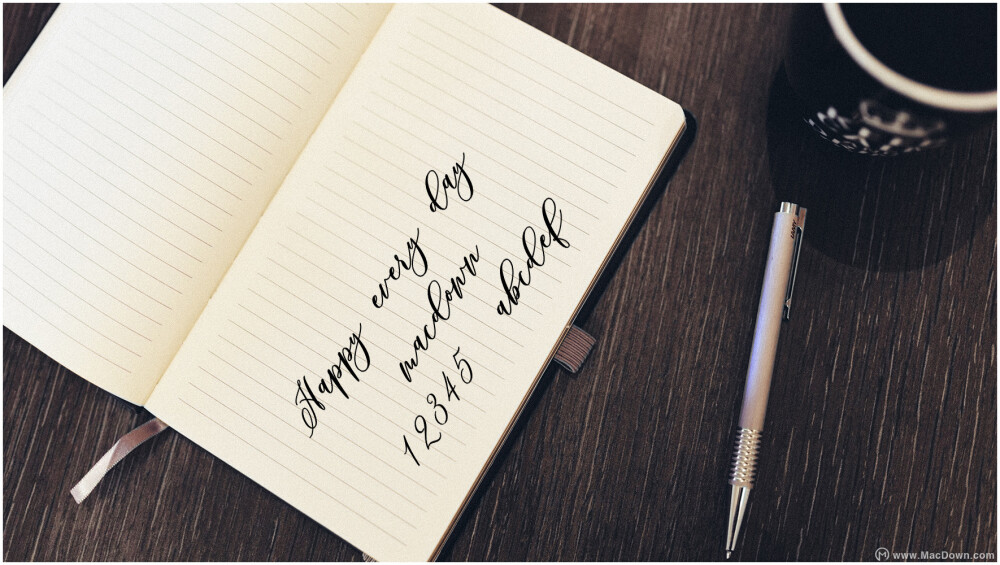 Happy every day
macdown
12345 abcdef
LAMY
www.MacDown.com